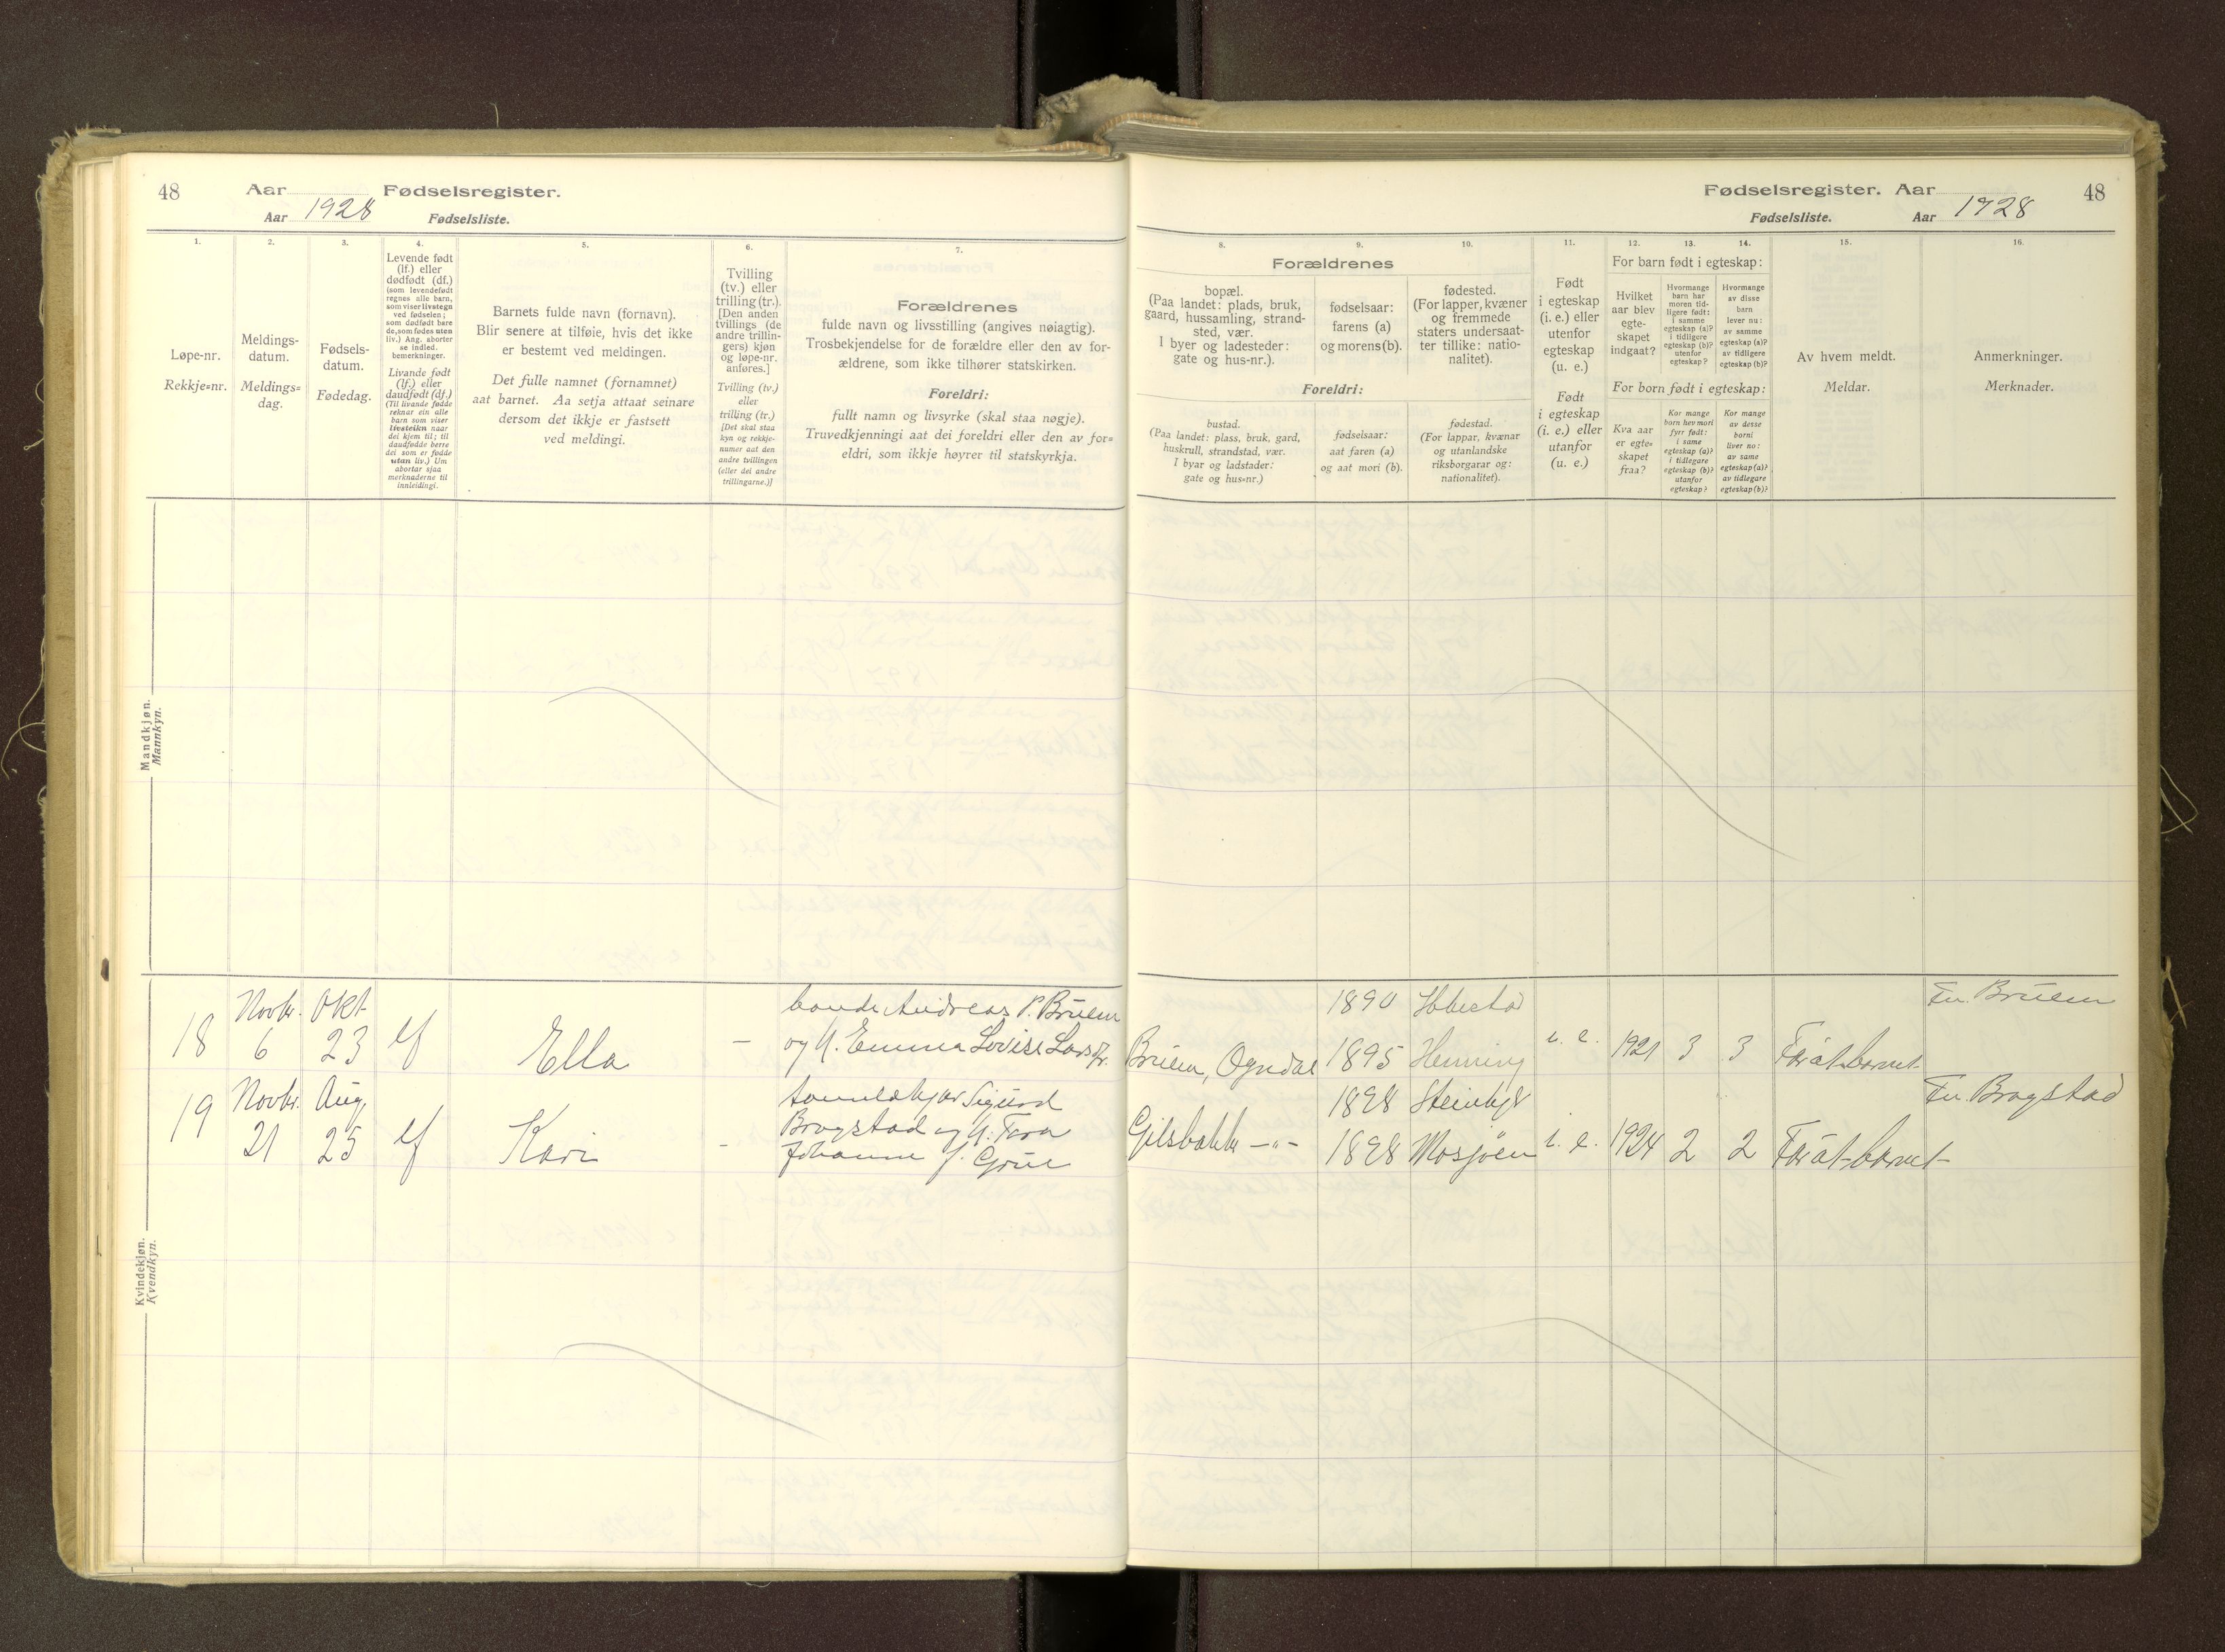 48
Aar
Fødselsregister.
Aar 1928
Fødselsliste.
Fødselsregister. Aar
48
Fødselsliste.
Aar 1928
1.
Løpe-nr.
Rekkje=nr.
2.
Meldings-
datum.
Meldings=
dag.
3.
Fødsels-
datum.
Fødedag.
4.
Levende født
(lf.) eller
dødfødt (df.)
(som levendefødt
regnes alle barn,
som viser livstegn
ved fødselen;
som dødfødt bare
de, som fødes uten
liv.) Ang. aborter
se indled.
bemerkninger.
Livande født
(lf.) eller
daudfødt (df.)
(Til livande fødde
reknar ein alle
barn som viser
livsteikn naar
dei kjem til; til
daudfødde berre
dei som er fødde
utan liv.) Um
abortar sjaa
merknaderne til
innleidingi.
5.
Barnets fulde navn (fornavn).
Blir senere at tilføie, hvis det ikke
er bestemt ved meldingen.
Det fulle namnet (fornamnet)
aat barnet. Aa setja attaat seinare
dersom det ikkje er fastsett
ved meldingi.
6.
Tvilling
(tv.) eller
trilling (tr.).
[Den anden
tvillings (de
andre trillin-
gers) kjøn
og løpe-nr.
anføres.]
Tvilling (tv.)
eller
trilling (tr.)
[Det skal staa
kyn og rekkje-
numer aat den
andre tvillingen
(eller dei andre
trillingarne.)]
7.
Forældrenes
fulde navn og livsstilling (angives nøiagtig).
Trosbekjendelse for de forældre eller den av for-
ældrene, som ikke tilhører statskirken.
Foreldri:
fullt namn og livsyrke (skal staa nøgje).
Truvedkjenningi aat dei foreldri eller den av for=
eldri, som ikkje høyrer til statskyrkja.
8.
Forældrenes
bopæl.
(Paa landet: plads, bruk,
gaard, hussamling, strand-
sted, vær.
I byer og ladesteder:
gate og hus-nr.).
Foreldri:
bustad.
(Paa landet: plass, bruk, gard,
huskrull, strandstad, vær.
I byar og ladstader:
gate og hus=nr.)
9.
fødselsaar:
farens (a)
og morens (b).
fødselsaar:
aat faren (a)
og aat mori (b).
10.
fødested.
(For lapper, kvæner
og fremmede
staters undersaat-
ter tillike: natio-
nalitet).
fødestad.
(For lappar, kvænar
og utanlandske
riksborgarar og:
nationalitet).
11.
Født
i egteskap
(i. e.) eller
utenfor
egteskap
(u. e.)
Født
i egteskap
(i. e.) eller
utanfor
(u. e.)
12.
For barn født i egteskap:
Hvilket
aar blev
egte-
skapet
indgaat?
For born født i egteskap:
Kva aar
er egte=
skapet
fraa?
13.
Hvormange
barn har
moren tid-
ligere født:
i samme
egteskap (a)?
i tidligere
egteskap (b)?
utenfor
egteskap?
Kor mange
born hev mori
fyrr født:
i same
egteskap (a)?
i tidlegare
egteskap (b)?
utanfor
egteskap?
14.
Hvormange
av disse
barn
lever nu:
av samme
egteskap (a)?
av tidligere
egteskap (b)?
Kor mange
av desse
borni
liver no:
av same
egteskap (a)?
av tidlegare
egteskap (b)?
15.
Av hvem meldt.
Meldar.
16.
Anmerkninger.
Merknader.
Mandkjøn.
Mannkyn.
Kvindekjøn.
Kvendkyn.
Novbr. Okt. bonde Andreas P. Brüem 1890 Fn. Brüem
18 6 23 lf Ella - og h. Emma Lovise Larsdr. Brüem, Ogndal 1895 Henning i. e. 1921 3 3 Far åt barnet
Novbr. Aug. Sigurd 1898 Steinkjer Fn. Brogstad
19 21 25 lf Kari - Brogstad og h. Tora Gilsbakk -"- 1898 Mosjöen i. e. 1924 2 2 Far åt barnet
Johanne f. Grüe